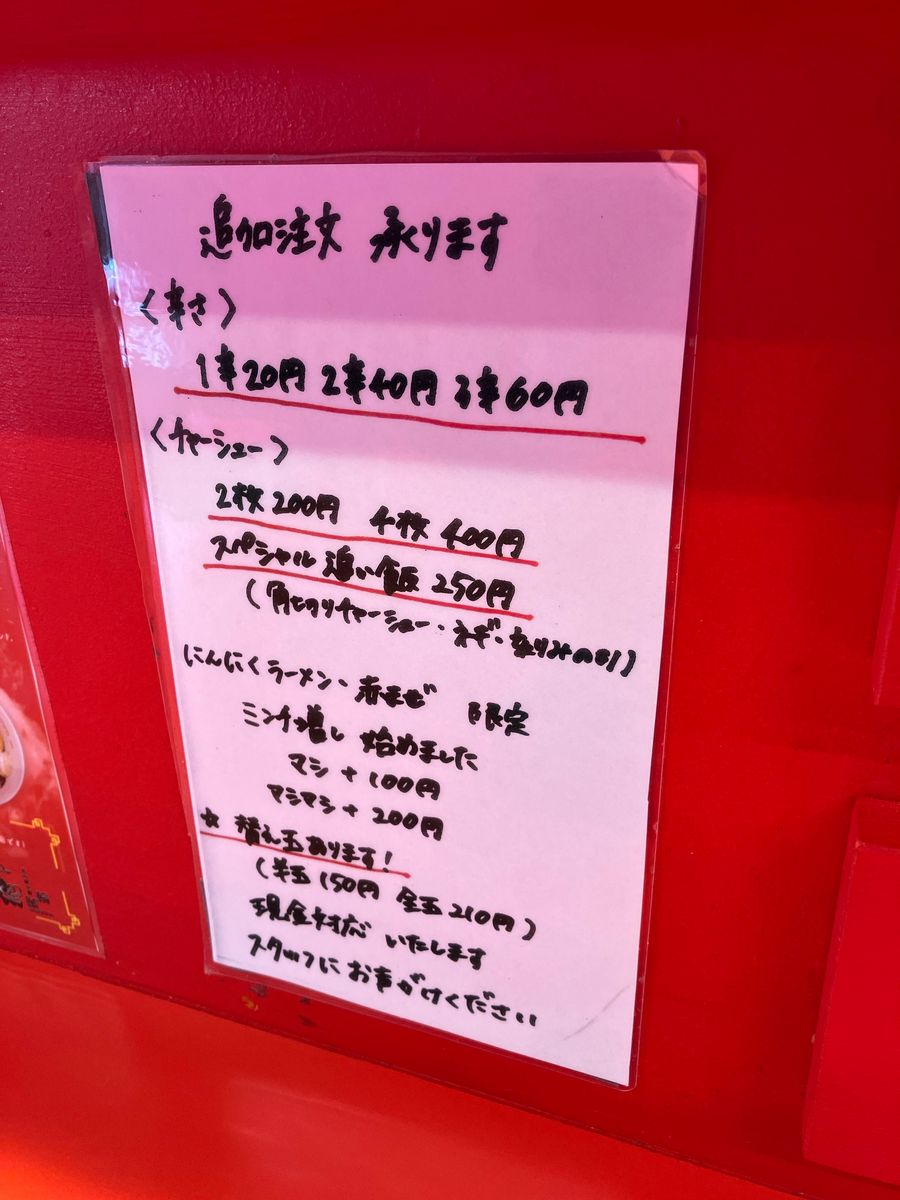 追加注文 承ります
〈辛さ〉
1辛20円 2辛40円 3辛60円
〈チャーシュー〉
2枚200円 4枚400円
スペシャル追い飯250円
(角切りチャーシュー・ネギ・
にんにくラーメン・赤まぜ 限定
ミンチ増し 始めました
マシ+100円
マシマシ+200円
☆替え玉あります!
(半玉150円 全玉210円)
現金対応いたします
スタッフにお声がけください